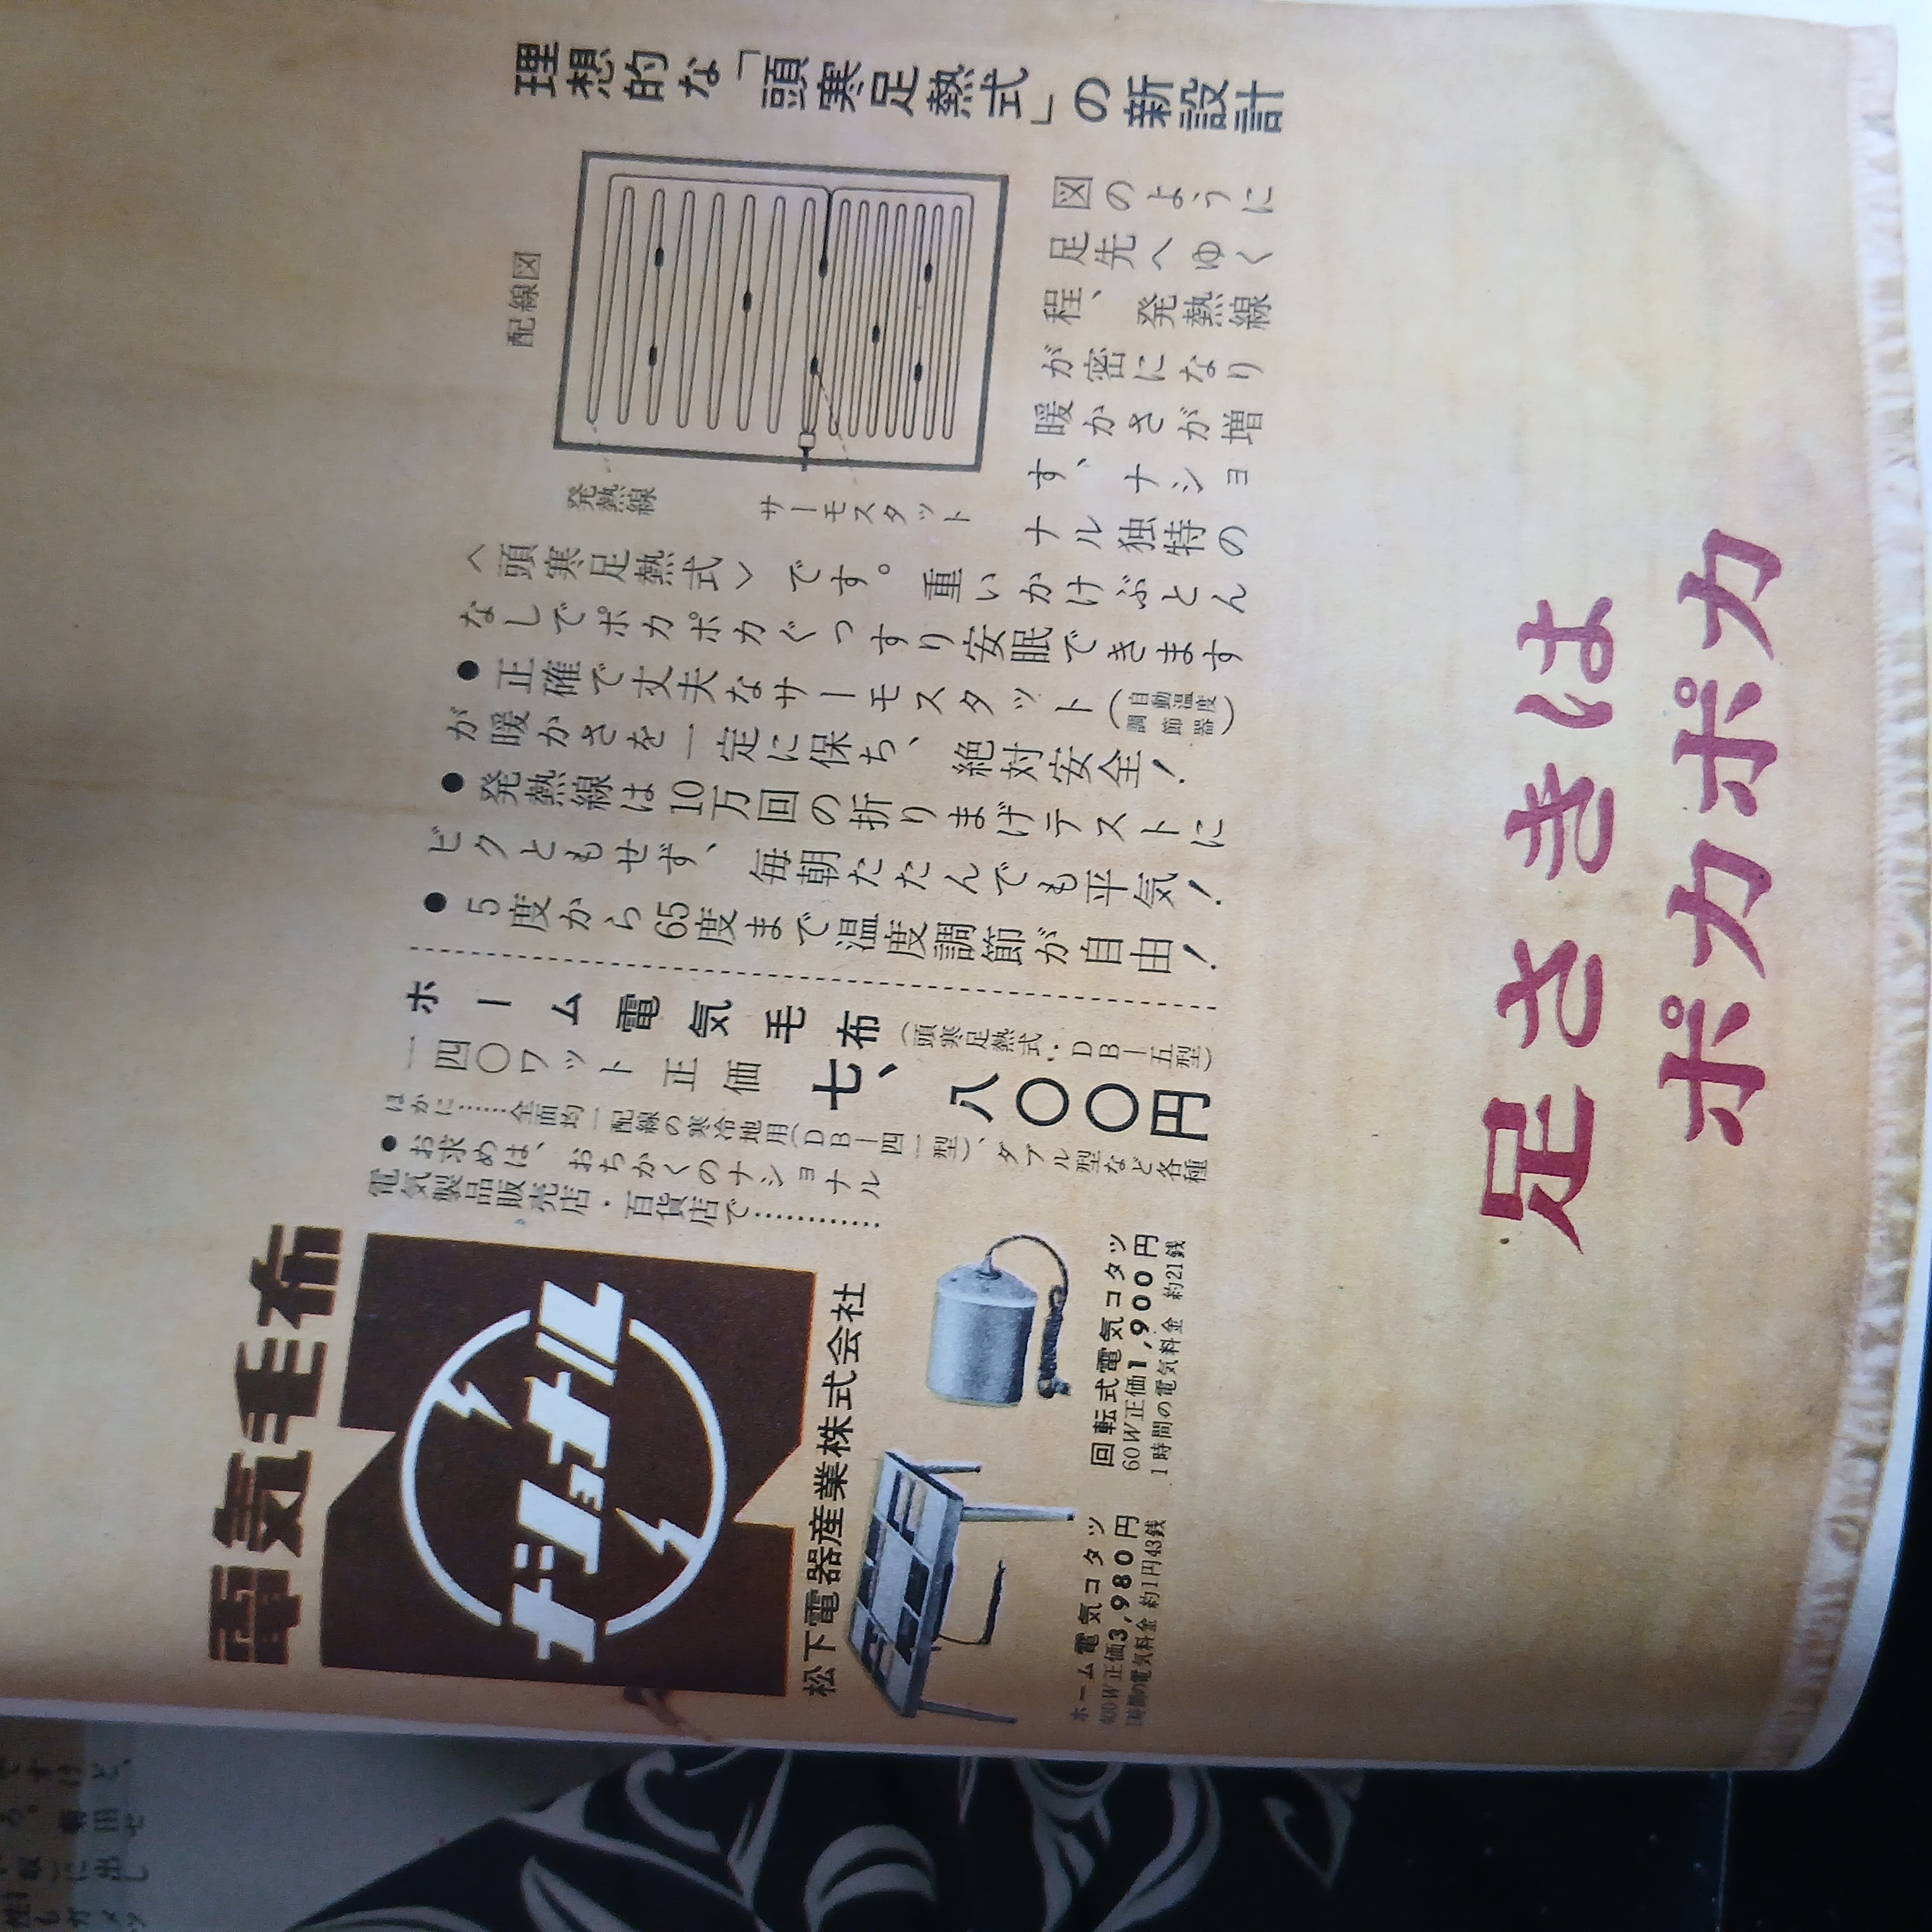 足さきは
ポカポカ
理想的な「頭寒足熱式」の新設計
配線図
発熱線
サーモスタット
図のように
足先へゆく
程、発熱線
が密になり
暖かさが増
す、ナショ
ナル独特の
〈頭寒足熱式〉です。重いかけぶとん
なしでポカポカぐっすり安眠できます
●正確で丈夫なサーモスタット(自動温度調節器)
が暖かさを一定に保ち、絶対安全!
●発熱線は10万回の折りまげテストに
ビクともせず、毎朝たたんでも平気!
●5度から65度まで温度調節が自由!
ホーム電気毛布(頭寒足熱式・DB―五型)
一四〇ワット 正価 七、八〇〇円
ほかに……全面均一配線の寒冷地用(DB―四一型)、ダブル型など各種
●お求めは、おちかくのナショナル
電気製品販売店・百貨店で…………
電気毛布
ナショナル
松下電器産業株式会社
ホーム電気コタツ
400W正価3,980円
1時間の電気料金 約1円43銭
回転式電気コタツ
60W正価1,900円
1時間の電気料金 約21銭